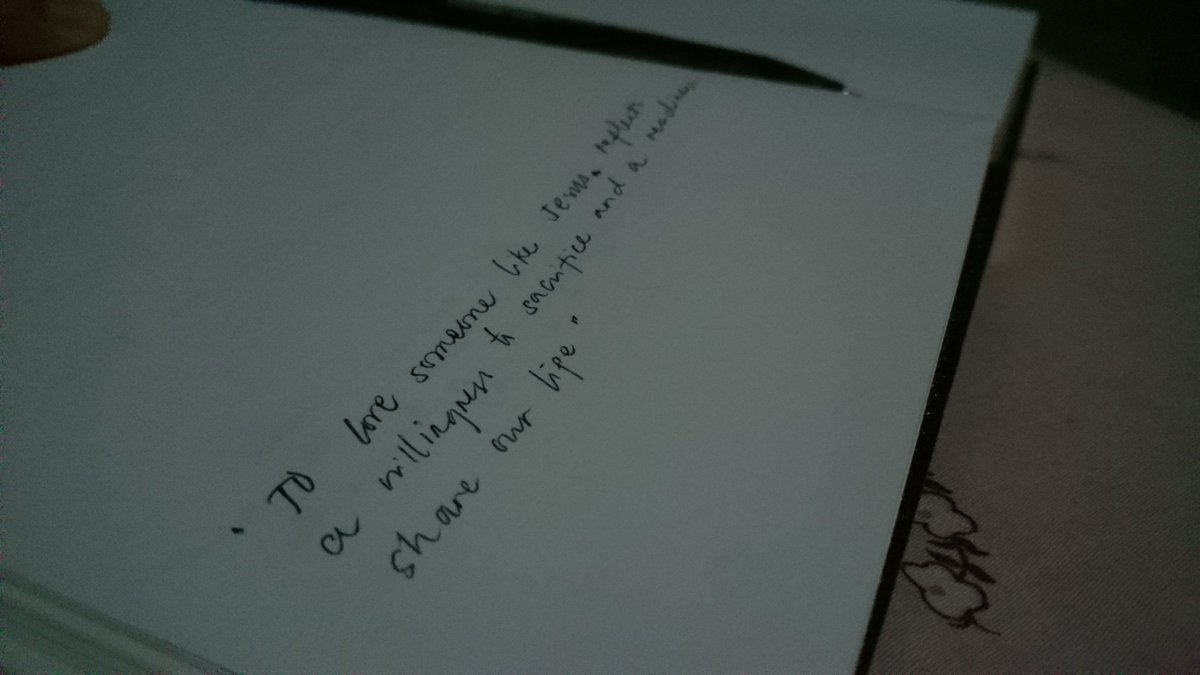 " To love someone like Jesus. reflects
a willingness to sacrifice and a readiness
share our life "